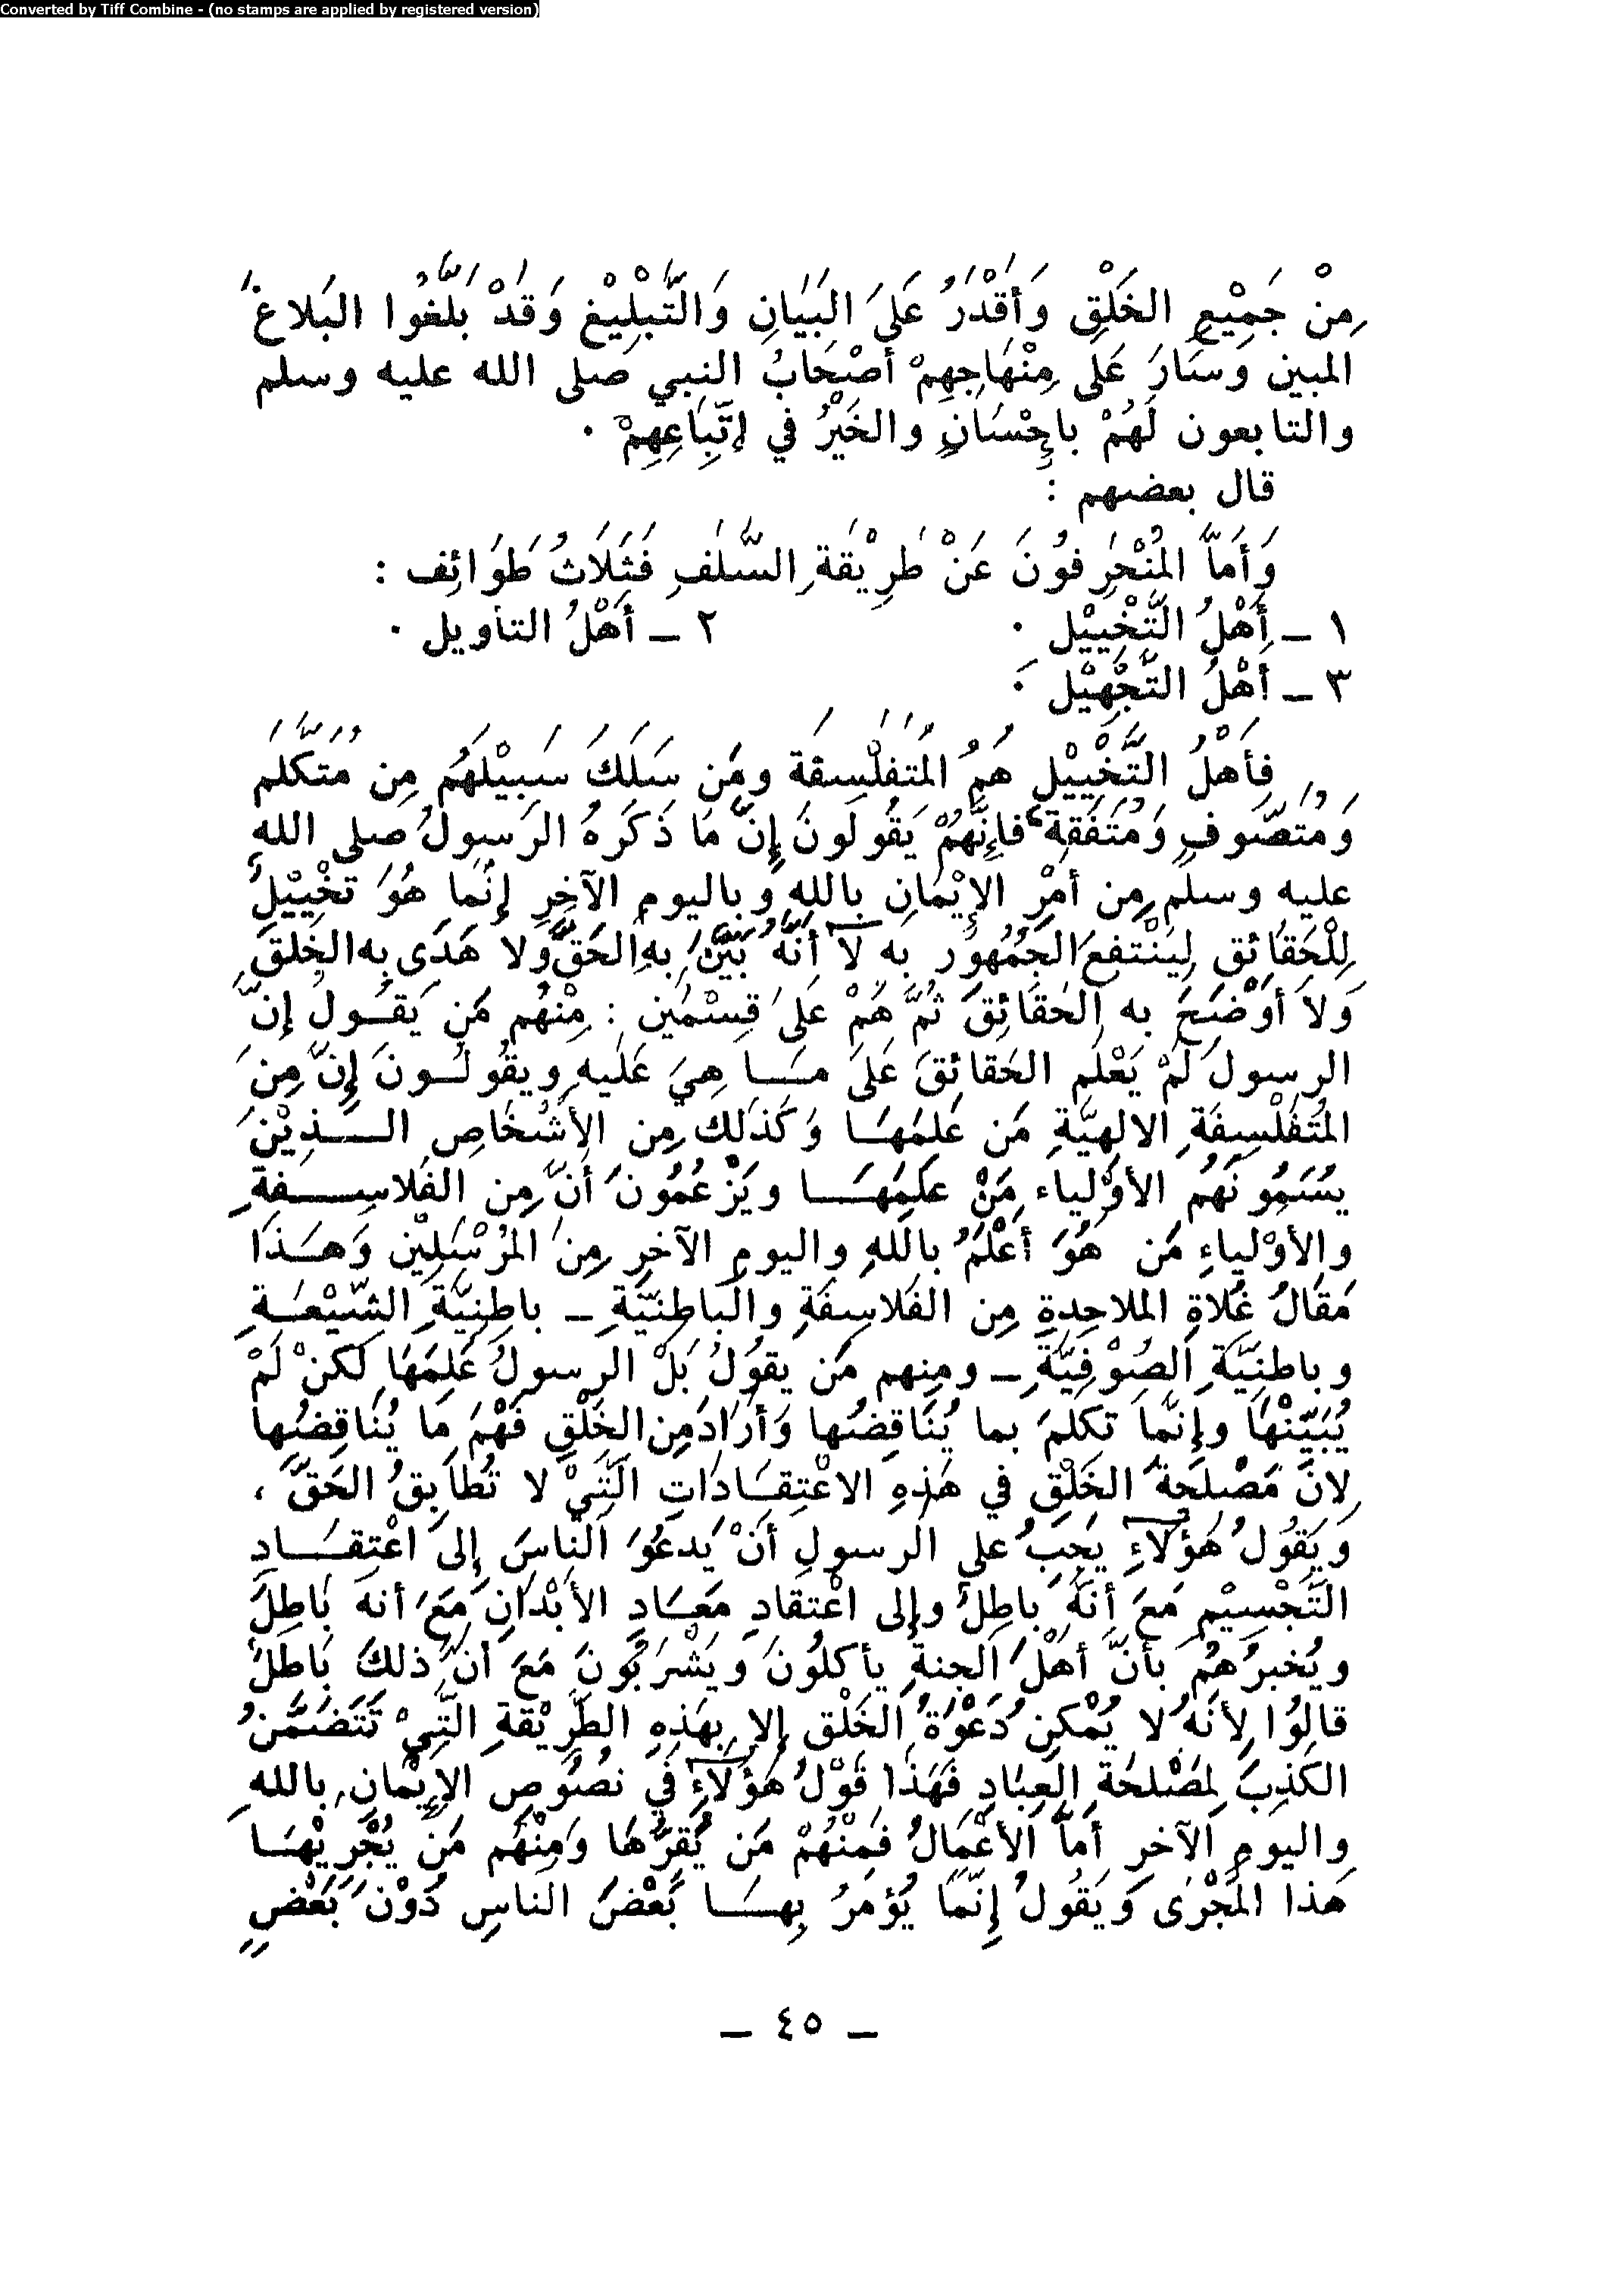 Converted by Tiff Combine - (no stamps are applied by registered version)
مِنْ جَمِيْعِ الخَلْقِ وَأَقْدَرُ عَلَى البَيَانِ وَالتَّبْلِيْغِ وَقَدْ بَلَّغُوا البَلاغَ
المبين وَسَارَ عَلَى مِنْهَاجِهِمْ أَصْحَابُ النبي صلى الله عليه وسلم
والتابعون لَهُمْ بإِحْسَانٍ والخَيْرُ في إتِّبَاعِهِمْ .
قال بعضهم :
وَأَمَّا المُنْحَرِفُونَ عَنْ طَرِيْقَةِ السَّلَفِ فَثَلَاثُ طَوَائِف :
١ ــ أَهْلُ التَّخْيِيْل . ٢ ــ أَهْلُ التأويل .
٣ ــ أَهْلُ التَّجْهِيْل .
فأهلُ التَّخْيِيْلِ هُمُ المُتَفَلْسِفَة ومَن سَلَكَ سَبِيْلَهُم مِن مُتَكَلِّم
وَمُتَصَوِّفٍ وَمُتَفَقِّهٍ فإِنَّهُمْ يَقُولُونَ إِنَّ مَا ذَكَرَهُ الرسولُ صلى الله
عليه وسلم مِن أَمْرِ الإِيْمَانِ باللهِ وباليومِ الآخِرِ إِنَّما هُوَ تَخْيِيْلٌ
لِلْحَقَائِق لِيَنْتَفِعَ الجُمْهُوْر بِه لا أَنَّهُ بَيَّنَ بِهِ الحَقَّ ولا هَدَى بِه الخلقَ
وَلا أَوْضَحَ به الحَقَائِقَ ثُمَّ هُمْ عَلَى قِسْمَيْن : مِنْهُم مَن يَقُـولُ إِنَّ
الرسولَ لَمْ يَعْلَم الحَقائِقَ عَلَى مَـا هِيَ عَلَيهِ ويَقُولُـونَ إِنَّ مِنَ
المُتَفَلْسِفَةِ الالهِيَّةِ مَن عَلِمَهَـا وَكَذَلك مِن الأَشْخَاصِ الــذِيْنَ
يُسَمُّونَهُم الأوْلياء مَنْ عَلِمَهَـا ويَزْعُمُونَ أَنَّ مِن الفَلاسِـفَةِ
والأوْلِياءِ مَن هُوَ أَعْلَمُ باللهِ واليومِ الآخرِ مِنَ المُرْسَلِيْنَ وَهَـذَا
مَقَالُ غُلاةِ الملاحِدةِ مِن الفَلاسِفَةِ والباطِنِيَّةِ ــ باطِنِيَّةِ الشِّيْعَـةِ
وباطِنِيَّةِ الصُوْفِيَّةِ ــ ومِنهم مَن يقُوْلُ بَلْ الرسولُ عَلِمَهَا لَكنْ لَمْ
يُبَيِّنْهَا وإِنَّمَا تكَلمَ بما يُنَاقِضُها وَأَرَادَ مِن الخَلْقِ فَهْمَ مَا يُنَاقِضُها
لِانَّ مَصْلَحَةَ الخَلْقِ في هَذِهِ الاعْتِقَـادَاتِ الَّتِيْ لا تُطَابِقُ الحَقَّ ،
وَيَقُولُ هَؤُلاءِ يَجبُ على الرسولِ أَنْ يَدعُوَ النَّاسَ إِلى اعْتِقَـادِ
التَّجْسِيْمِ مَعَ أَنَّهُ باطِلٌ وإِلى اعْتقادِ مَعَـادِ الأَبْدَانِ مَعَ أنه بَاطِلٌ
ويُخبرُهُم بأَنَّ أَهْلَ الجنةِ يأكلُونَ ويَشْرَبُونَ مَعَ أَنَّ ذلكَ بَاطلٌ
قالُوا لِأَنَّهُ لا يُمْكِن دَعْوَةُ الخَلْق إلا بِهَذِهِ الطَّرِيْقةِ الَّتِيْ تَتَضَمَّنُ
الكَذِبَ لِمَصْلَحَةِ العِبَادِ فَهَذَا قَوْلُ هَؤُلاءِ فَي نصُوْصِ الإِيْمَانِ باللهِ
واليومِ الآخرِ أَمَّا الأَعْمَالُ فَمِنْهُمْ مَن يُقِرُّهَا وَمِنْهُم مَن يُجْرِيْهَـا
هَذا المُجْرَى وَيَقُولُ إِنَّمَا يُؤمَرُ بِهـَا بَعْضُ الناسِ دُوْنَ بَعْضٍ
ــ ٤٥ ــ